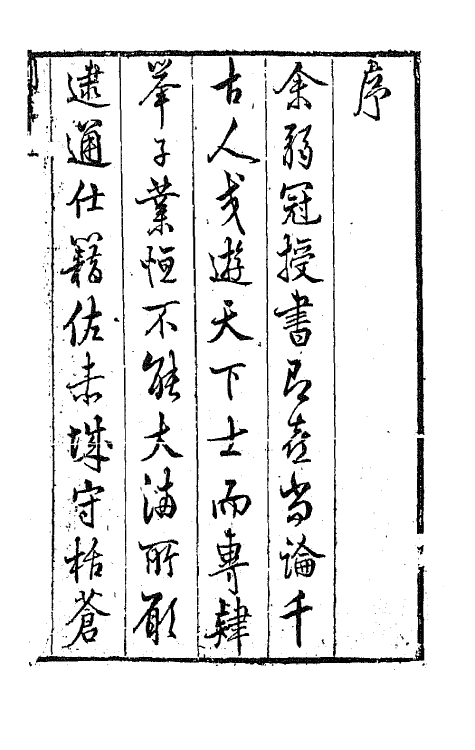 序
余弱冠授書即喜尚論千
古人或遊天下士而專肄
舉子業恒不能大滿所願
逮通仕籍佐赤城守栝蒼